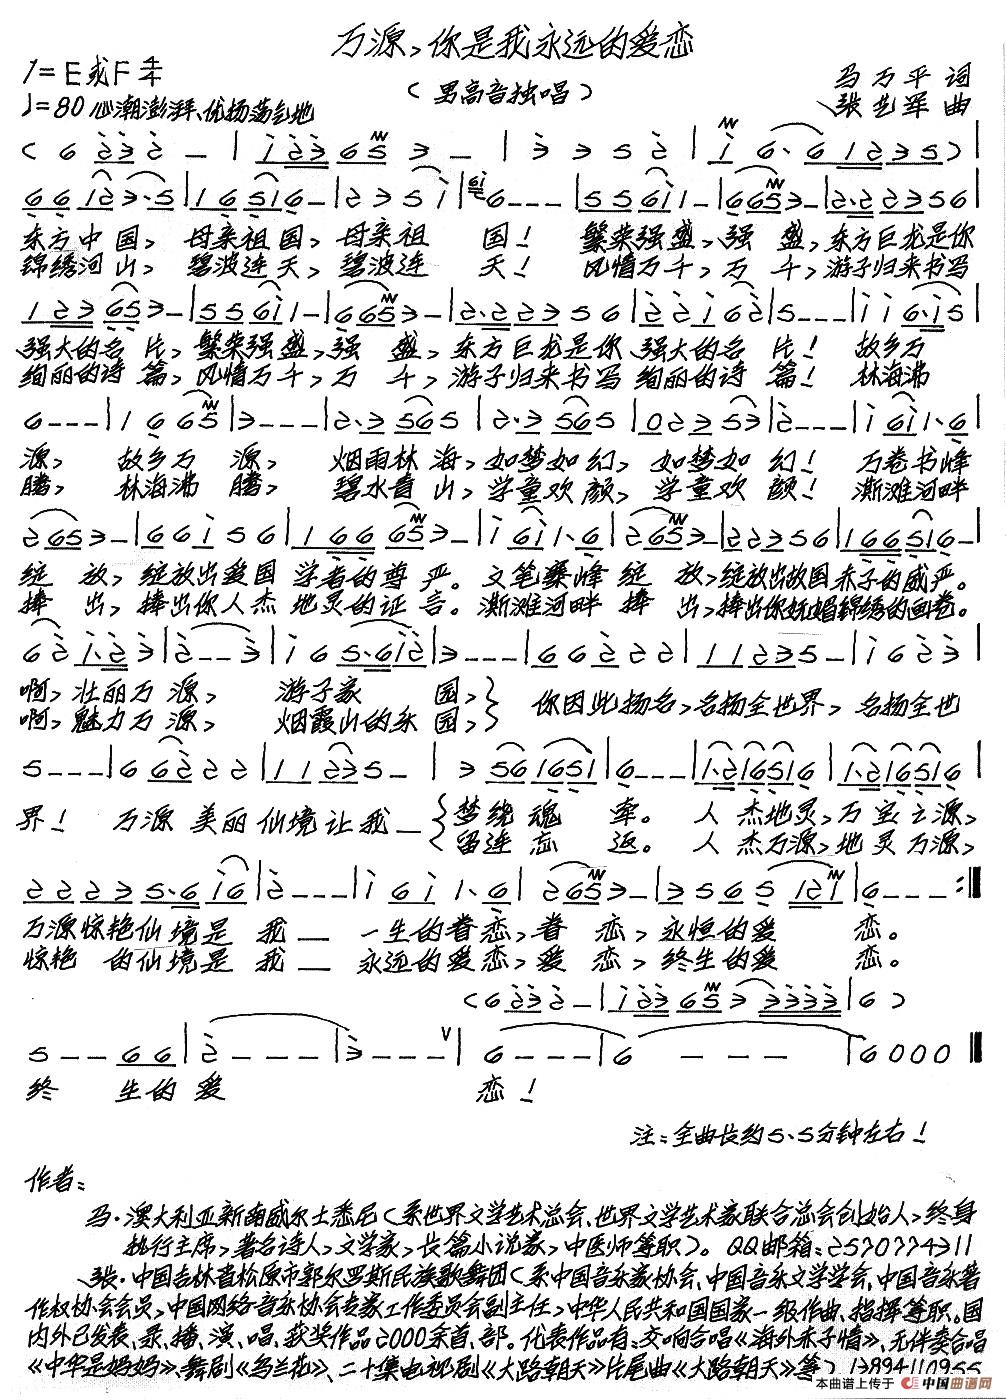 万源，你是我永远的爱恋
1=E或F 4/4
（男高音独唱）
马万平 词
♩=80 心潮澎湃、优扬荡气地
张艺军 曲
东方中国，母亲祖国，母亲祖国！繁荣强盛，强盛，东方巨龙是你
锦绣河山，碧波连天，碧波连天！风情万千，万千，游子归来书写
强大的名片，繁荣强盛，强盛，东方巨龙是你强大的名片！故乡万
绚丽的诗篇，风情万千，万千，游子归来书写绚丽的诗篇！林海沸
源，故乡万源，烟雨林海，如梦如幻，如梦如幻！万卷书峰
腾，林海沸腾，碧水青山，学童欢颜，学童欢颜！澌滩河畔
绽放，绽放出爱国学者的尊严。文笔寨峰绽放，绽放出故国赤子的威严。
捧出，捧出你人杰地灵的证言。澌滩河畔捧出，捧出你妩媚锦绣的画卷。
啊，壮丽万源，游子家园，你因此扬名，名扬全世界，名扬全世
啊，魅力万源，烟霞山的乐园，
界！万源美丽仙境让我—梦绕魂牵。人杰地灵，万宝之源，
留连忘返。人杰万源，地灵万源，
万源惊艳仙境是我— 一生的眷恋，眷恋，永恒的爱恋。
惊艳的仙境是我— 永远的爱恋，爱恋，终生的爱恋。
终生的爱恋！
注：全曲长约5.5分钟左右！
作者：
马·澳大利亚新南威尔士悉尼（系世界文学艺术总会、世界文学艺术家联合总会创始人，终身
执行主席，著名诗人，文学家，长篇小说家，中医师等职）。QQ邮箱：2570774311
张·中国吉林省松原市郭尔罗斯民族歌舞团（系中国音乐家协会、中国音乐文学学会、中国音乐著
作权协会会员，中国网络音乐协会专家工作委员会副主任，中华人民共和国国家一级作曲、指挥等职。国
内外已发表、录、播、演、唱、获奖作品2000余首、部。代表作品有：交响合唱《海外赤子情》、无伴奏合唱
《中华是妈妈》、舞剧《乌兰花》、二十集电视剧《大路朝天》片尾曲《大路朝天》等）13894110955
本曲谱上传于 中国曲谱网